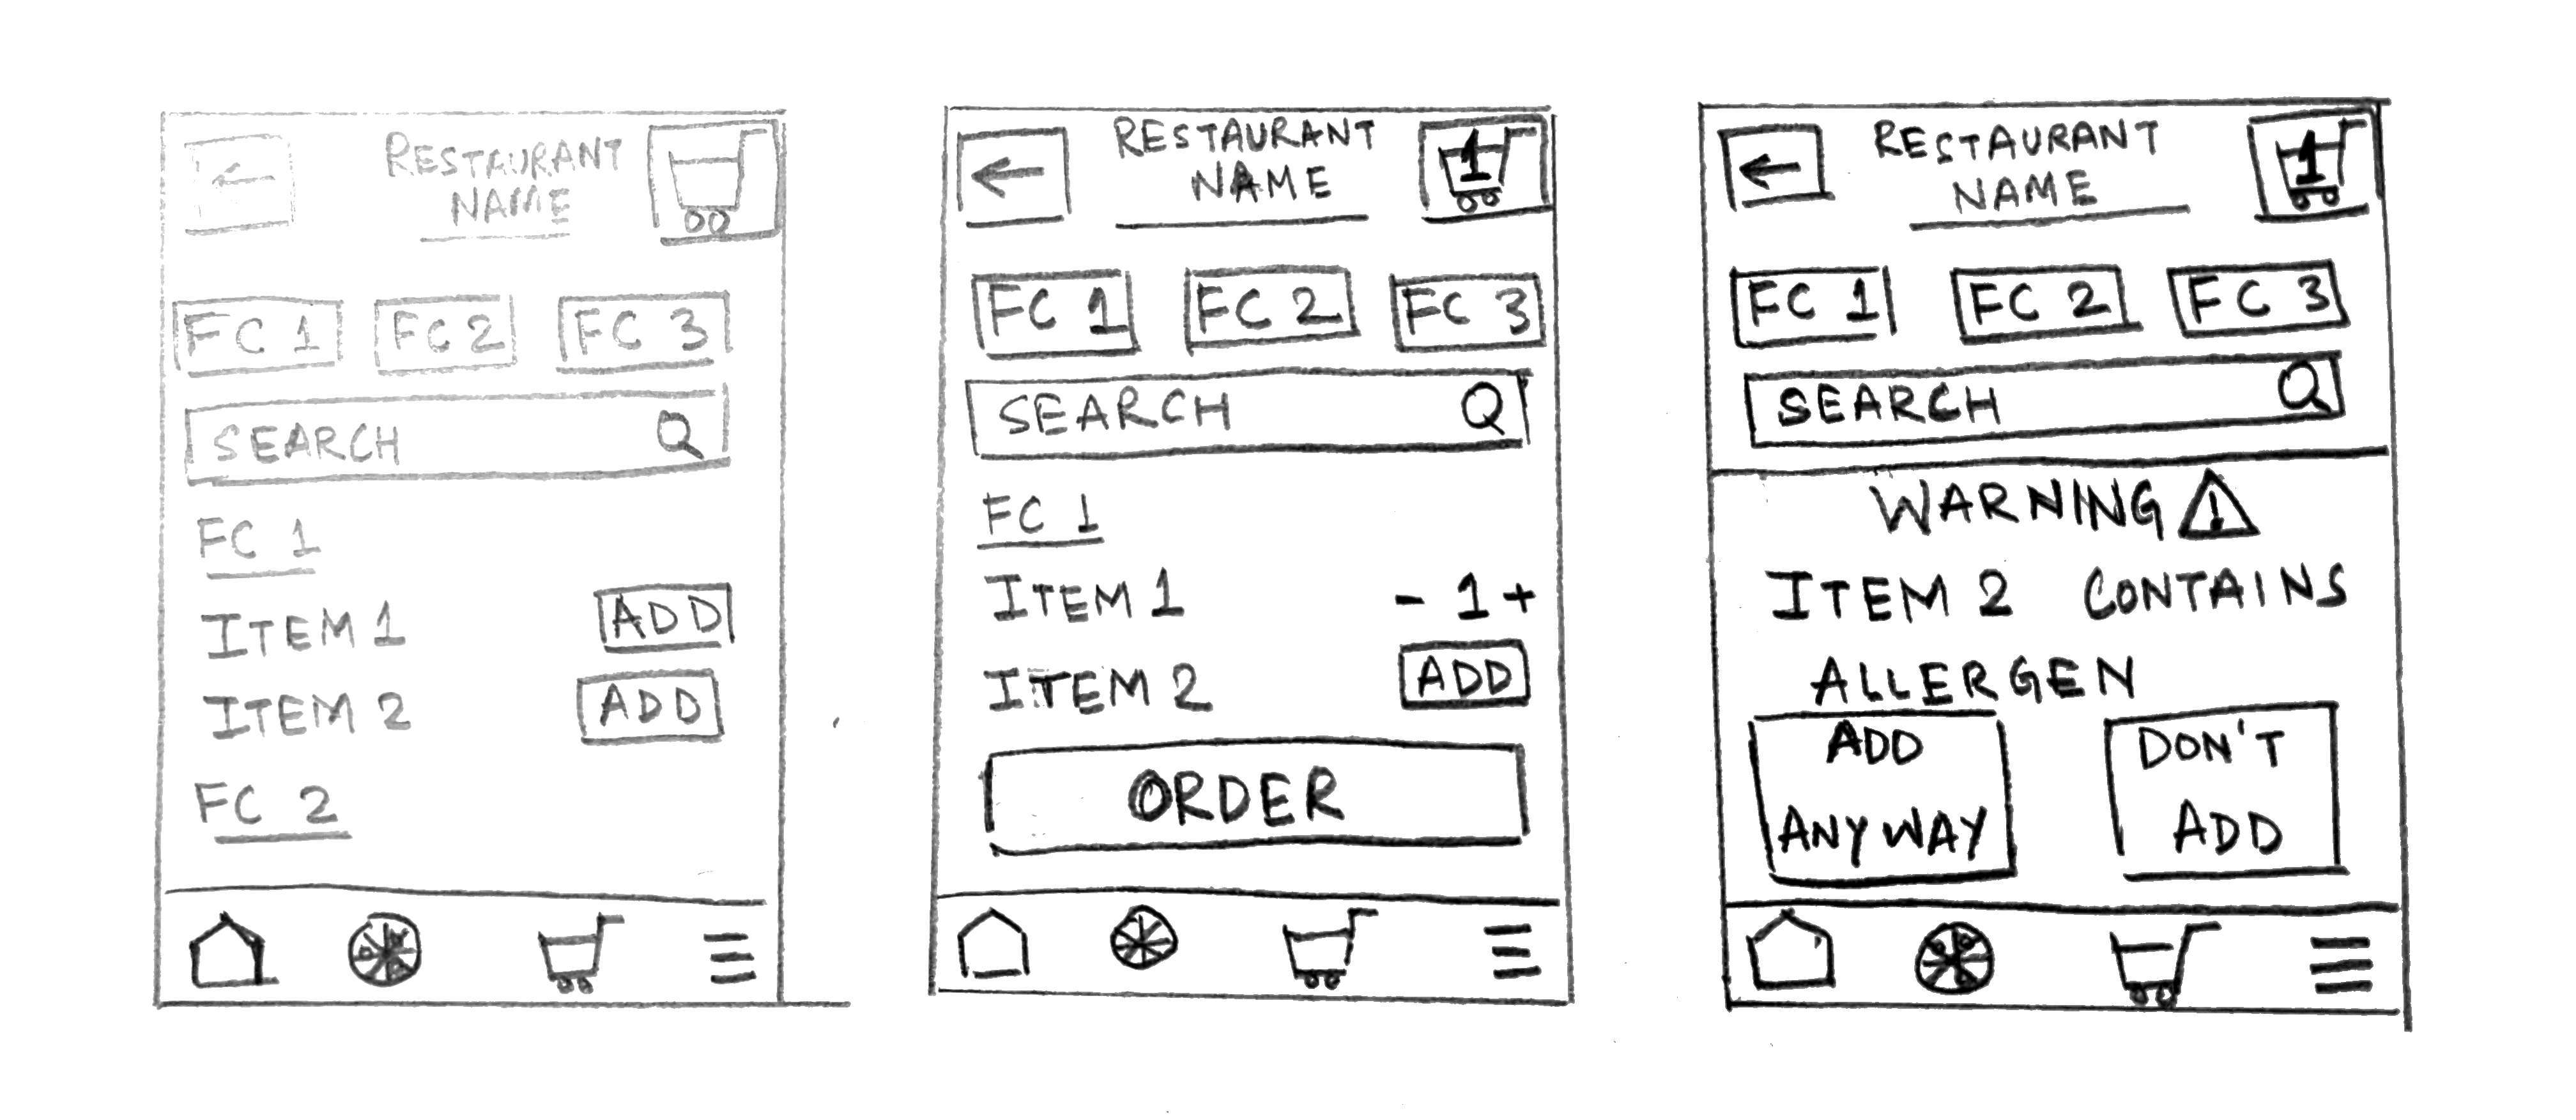 RESTAURANT
NAME
FC 1 FC 2 FC 3
SEARCH
FC 1
ITEM 1 ADD
ITEM 2 ADD
FC 2
RESTAURANT
NAME
1
FC 1 FC 2 FC 3
SEARCH
FC 1
ITEM 1 - 1 +
ITEM 2 ADD
ORDER
RESTAURANT
NAME
1
FC 1 FC 2 FC 3
SEARCH
WARNING !
ITEM 2 CONTAINS
ALLERGEN
ADD
ANYWAY
DON'T
ADD